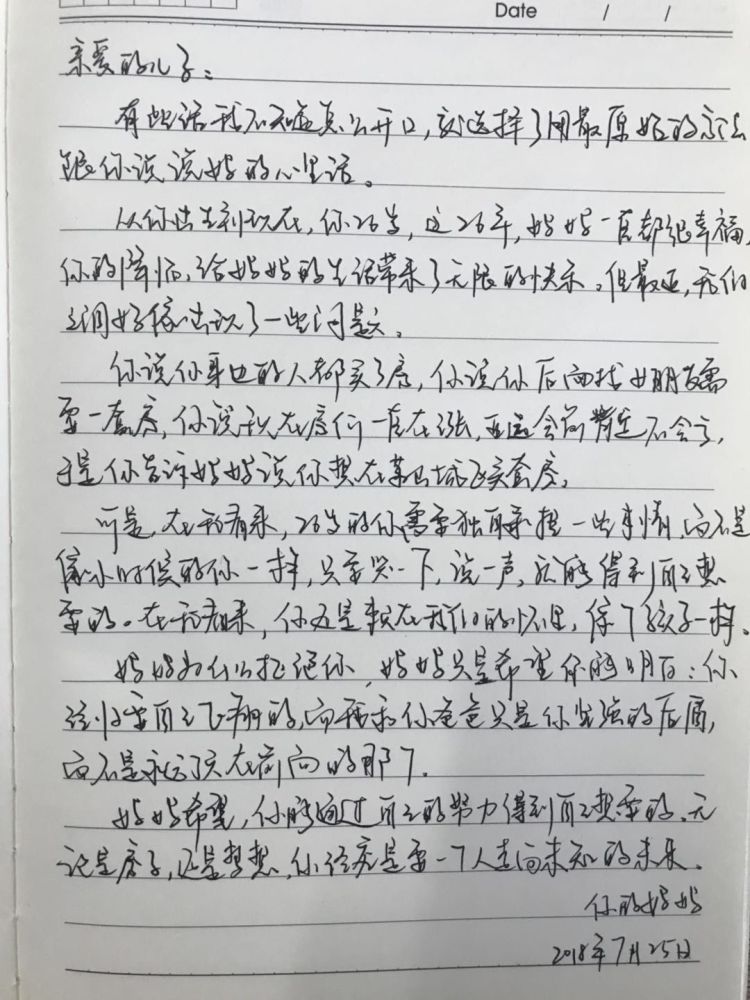 Date / /
亲爱的儿子:
有些话我不知道怎么开口,就选择了用最原始的方法
跟你说说妈的心里话。
从你出生到现在,你26岁,这26年,妈妈一直都很幸福,
你的降临,给妈妈的生活带来了无限的快乐。但最近,我们
之间好像出现了一些问题。
你说你身边的人都买了房,你说你后面找女朋友需
要一套房,你说现在房价一直在涨,
于是你告诉妈妈说你想在某地城区买套房。
可是,在我看来,26岁的你需要独自承担一些事情,而不是
像小时候的你一样,只要哭一下,说一声,就能得到自己想
要的。在我看来,你还是赖在我们的怀里,像个孩子一样。
妈妈为什么拒绝你,妈妈只是希望你能明白:你
终归要自己飞翔的,而我和你爸爸只是你坚强的后盾,
而不是永远顶在前面的那个。
妈妈希望,你能通过自己的努力得到自己想要的,无
论是房子,还是梦想,你终究是要一个人走向未知的未来。
你的妈妈
2018年7月25日